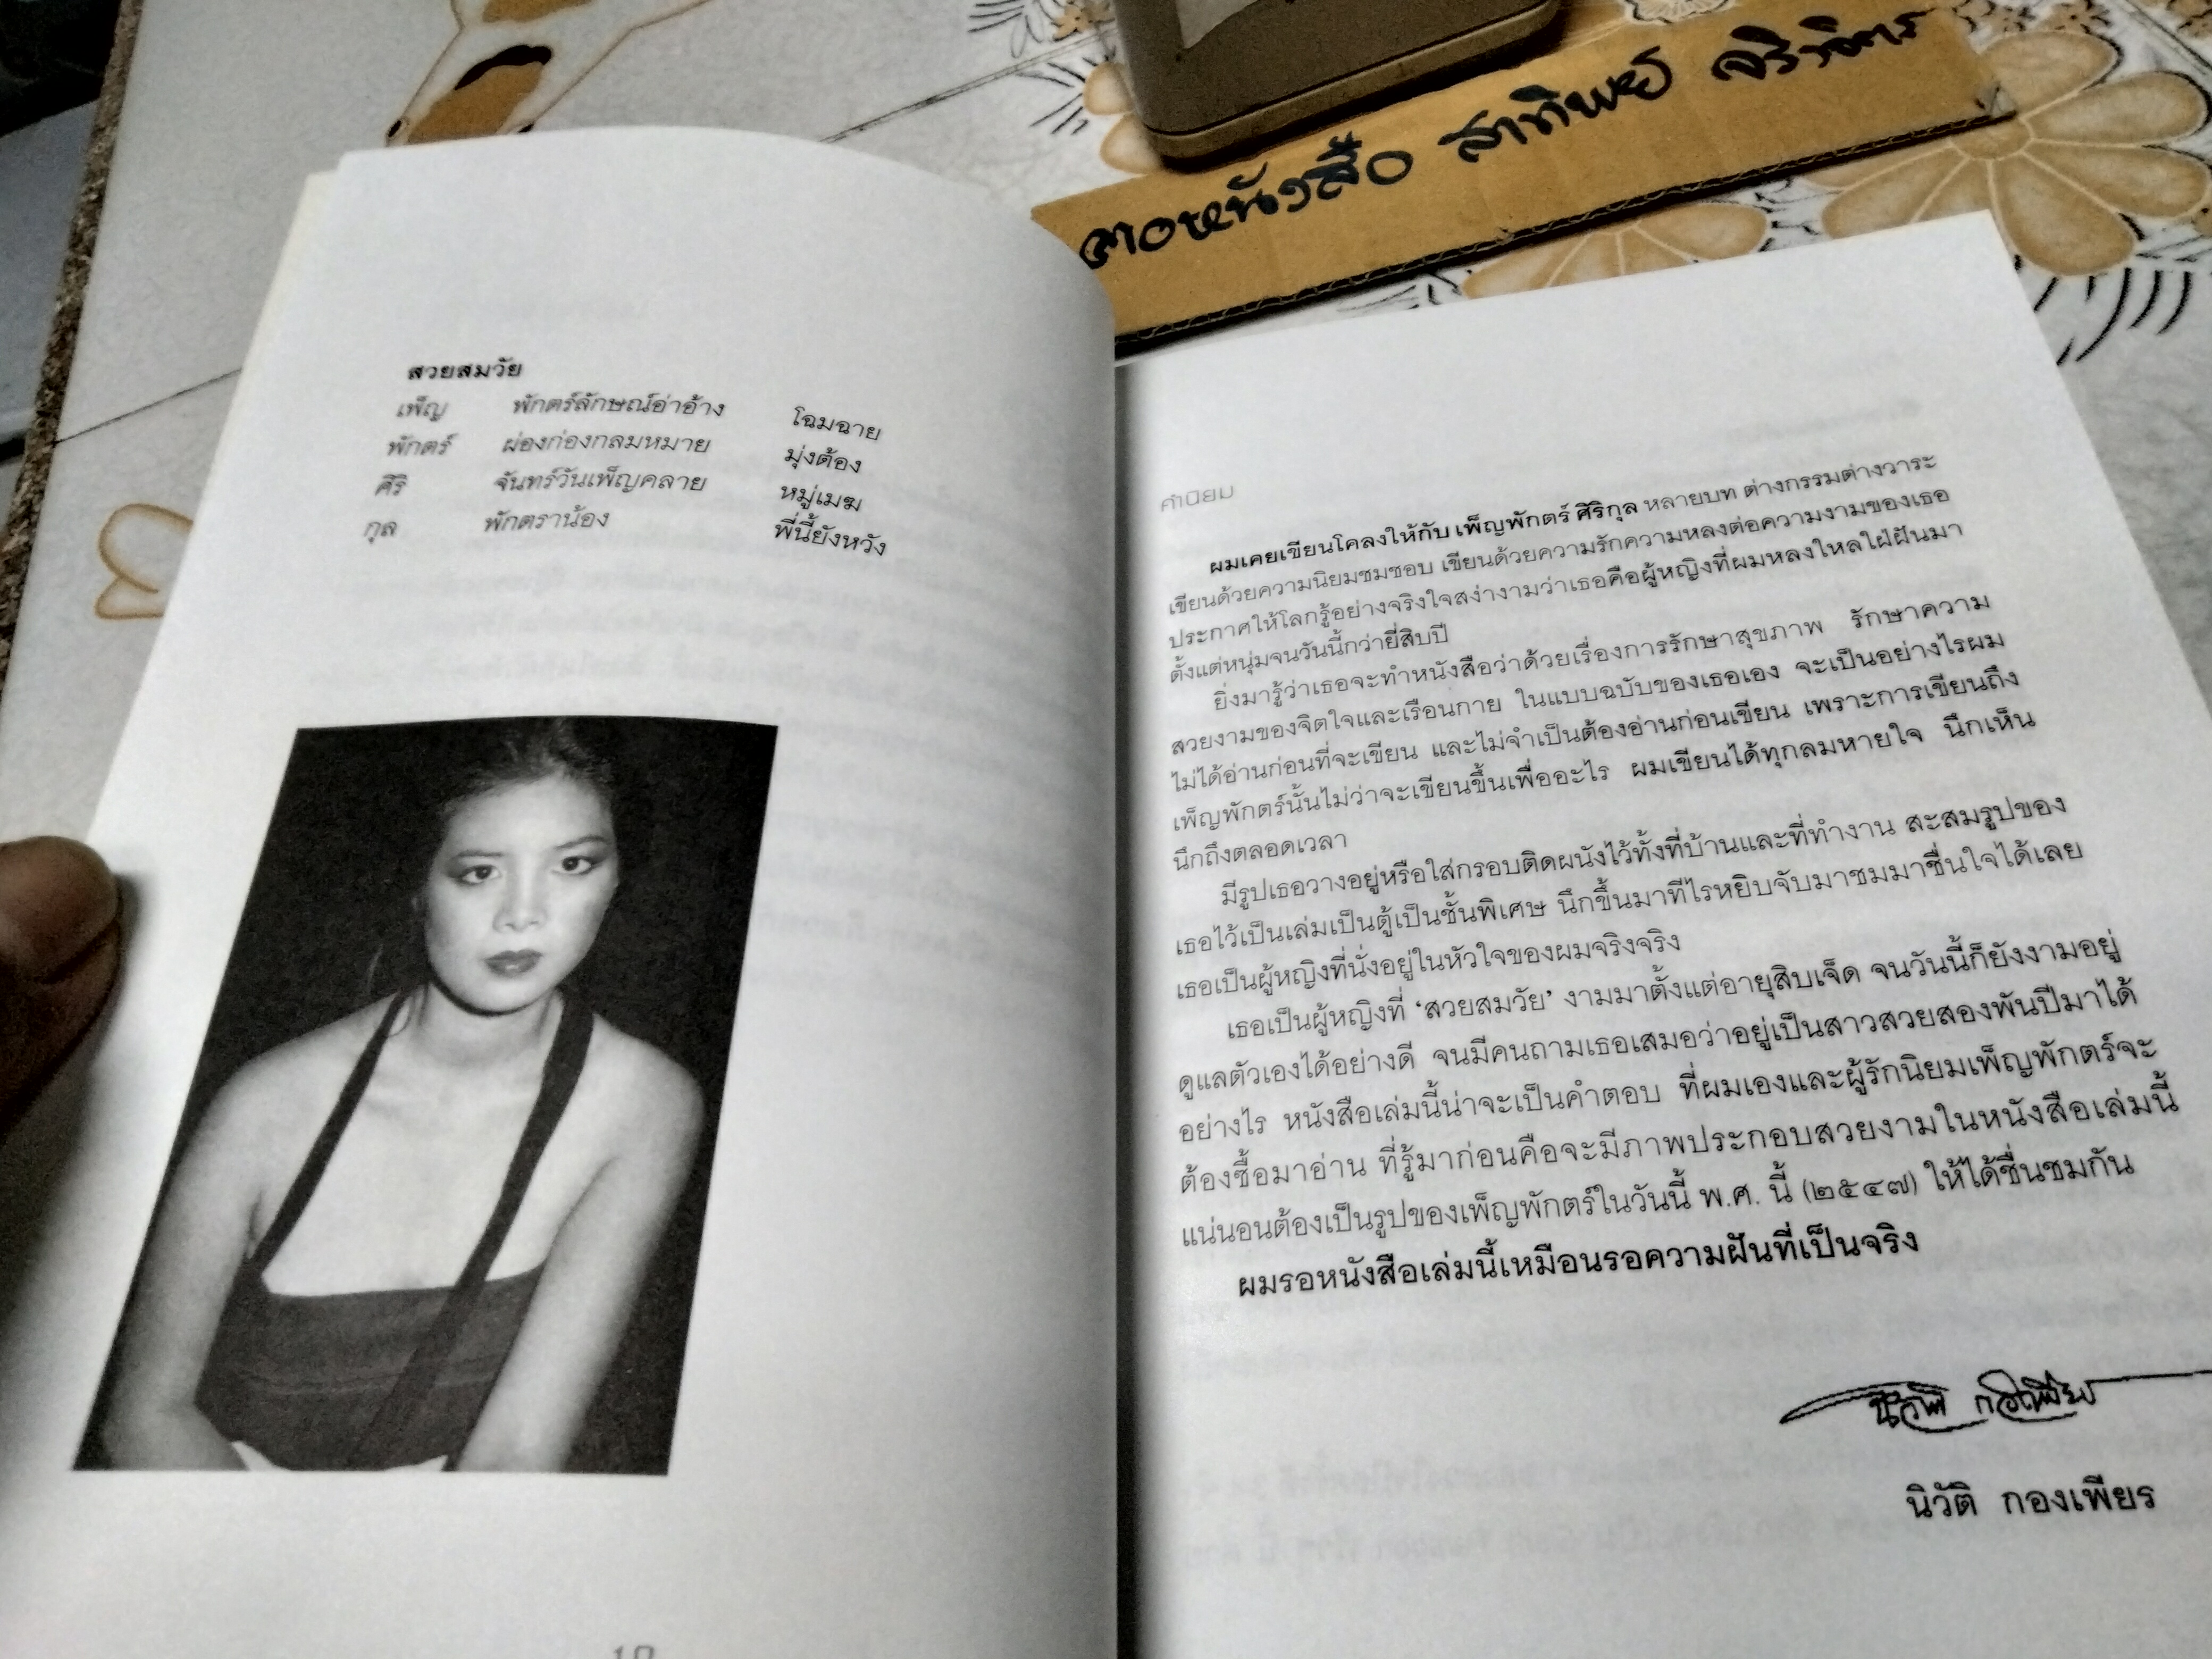 จองหนังสือ สาทิพย์ จริวจิตร
สวยสมวัย
เพ็ญ พักตร์ลักษณ์อ่าอ้าง โฉมฉาย
พักตร์ ผ่องก่องกลมหมาย มุ่งต้อง
ศิริ จันทร์วันเพ็ญคลาย หมู่เมฆ
กุล พักตราน้อง พี่นี้ยังหวัง
คำนิยม
ผมเคยเขียนโคลงให้กับ เพ็ญพักตร์ ศิริกุล หลายบท ต่างกรรมต่างวาระ
เขียนด้วยความนิยมชมชอบ เขียนด้วยความรักความหลงต่อความงามของเธอ
ประกาศให้โลกรู้อย่างจริงใจสง่างามว่าเธอคือผู้หญิงที่ผมหลงใหลใฝ่ฝันมา
ตั้งแต่หนุ่มจนวันนี้กว่ายี่สิบปี
ยิ่งมารู้ว่าเธอจะทำหนังสือว่าด้วยเรื่องการรักษาสุขภาพ รักษาความ
สวยงามของจิตใจและเรือนกาย ในแบบฉบับของเธอเอง จะเป็นอย่างไรผม
ไม่ได้อ่านก่อนที่จะเขียน และไม่จำเป็นต้องอ่านก่อนเขียน เพราะการเขียนถึง
เพ็ญพักตร์นั้นไม่ว่าจะเขียนขึ้นเพื่ออะไร ผมเขียนได้ทุกลมหายใจ นึกเห็น
นึกถึงตลอดเวลา
มีรูปเธอวางอยู่หรือใส่กรอบติดผนังไว้ทั้งที่บ้านและที่ทำงาน สะสมรูปของ
เธอไว้เป็นเล่มเป็นตู้เป็นชั้นพิเศษ นึกขึ้นมาทีไรหยิบจับมาชมมาชื่นใจได้เลย
เธอเป็นผู้หญิงที่นั่งอยู่ในหัวใจของผมจริงจริง
เธอเป็นผู้หญิงที่ ‘สวยสมวัย’ งามมาตั้งแต่อายุสิบเจ็ด จนวันนี้ก็ยังงามอยู่
ดูแลตัวเองได้อย่างดี จนมีคนถามเธอเสมอว่าอยู่เป็นสาวสวยสองพันปีมาได้
อย่างไร หนังสือเล่มนี้น่าจะเป็นคำตอบ ที่ผมเองและผู้รักนิยมเพ็ญพักตร์จะ
ต้องซื้อมาอ่าน ที่รู้มาก่อนคือจะมีภาพประกอบสวยงามในหนังสือเล่มนี้
แน่นอนต้องเป็นรูปของเพ็ญพักตร์ในวันนี้ พ.ศ. นี้ (๒๕๔๗) ให้ได้ชื่นชมกัน
ผมรอหนังสือเล่มนี้เหมือนรอความฝันที่เป็นจริง
นิวัติ กองเพียร
นิวัติ กองเพียร